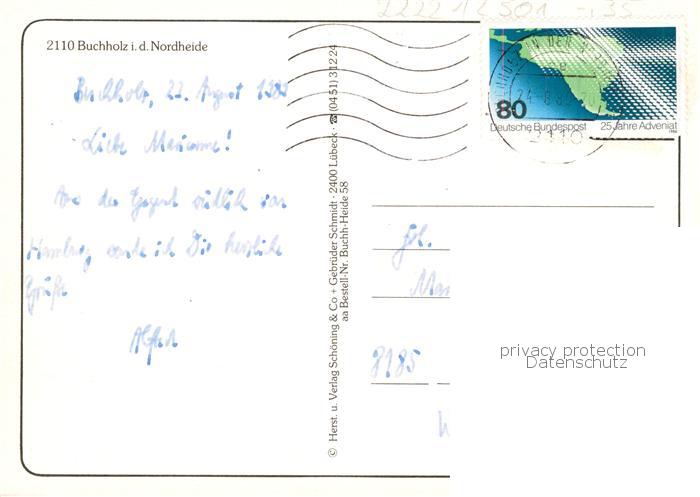 2222 12 501 -.35
2110 Buchholz i. d. Nordheide
Buchholz, 22. August
Liebe Marianne!
Aus der Gegend südlich von
Hamburg sende ich Dir herzliche
Grüße
Alfred
© Herst. u. Verlag Schöning & Co + Gebrüder Schmidt · 2400 Lübeck · ☎ (04 51) 3 12 24
aa Bestell-Nr. Buchh-Heide 58
80
Deutsche Bundespost 25 Jahre Adveniat
1986
2110
Frl.
Mar
8185
privacy protection
Datenschutz